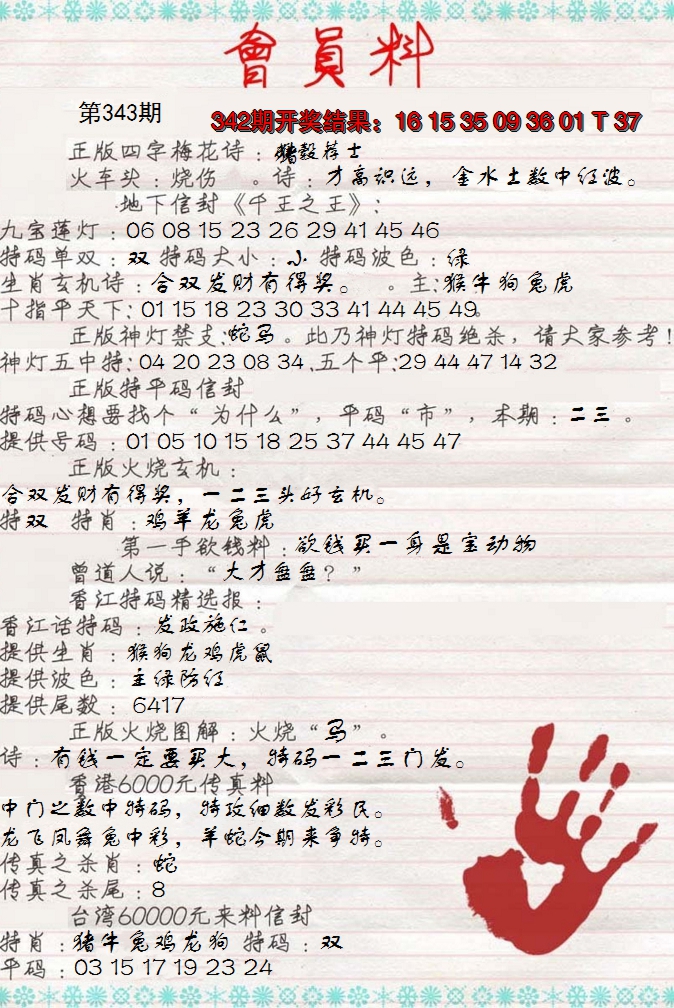 會員料
第343期
342期开奖结果：16 15 35 09 36 01 T 37
正版四字梅花诗：毅荐士
火车头：烧伤 。诗：才高识远，金水土数中红波。
地下信封《千王之王》：
九宝莲灯：06 08 15 23 26 29 41 45 46
特码单双：双 特码大小：小 特码波色：绿
生肖玄机诗：合双发财有得奖。 。主：猴牛狗兔虎
十指平天下：01 15 18 23 30 33 41 44 45 49。
正版神灯禁支：蛇马。此乃神灯特码绝杀，请大家参考！
神灯五中特：04 20 23 08 34 .五个平：29 44 47 14 32
正版特平码信封
特码心想要找个“为什么”，平码“市”，本期：二三 。
提供号码：01 05 10 15 18 25 37 44 45 47
正版火烧玄机：
合双发财有得奖，一二三头好玄机。
特双 特肖：鸡羊龙兔虎
第一手欲钱料：欲钱买一身是宝动物
曾道人说：“大才盘盘？”
香江特码精选报：
香江话特码：发政施仁 。
提供生肖：猴狗龙鸡虎鼠
提供波色：主绿防红
提供尾数：6417
正版火烧图解：火烧“马”。
诗：有钱一定要买大，特码一二三门发。
香港6000元传真料
中门之数中特码，特攻细数发彩民。
龙飞凤舞兔中彩，羊蛇今期来争特。
传真之杀肖：蛇
传真之杀尾：8
台湾60000元来料信封
特肖：猪牛兔鸡龙狗 特码：双
平码：03 15 17 19 23 24